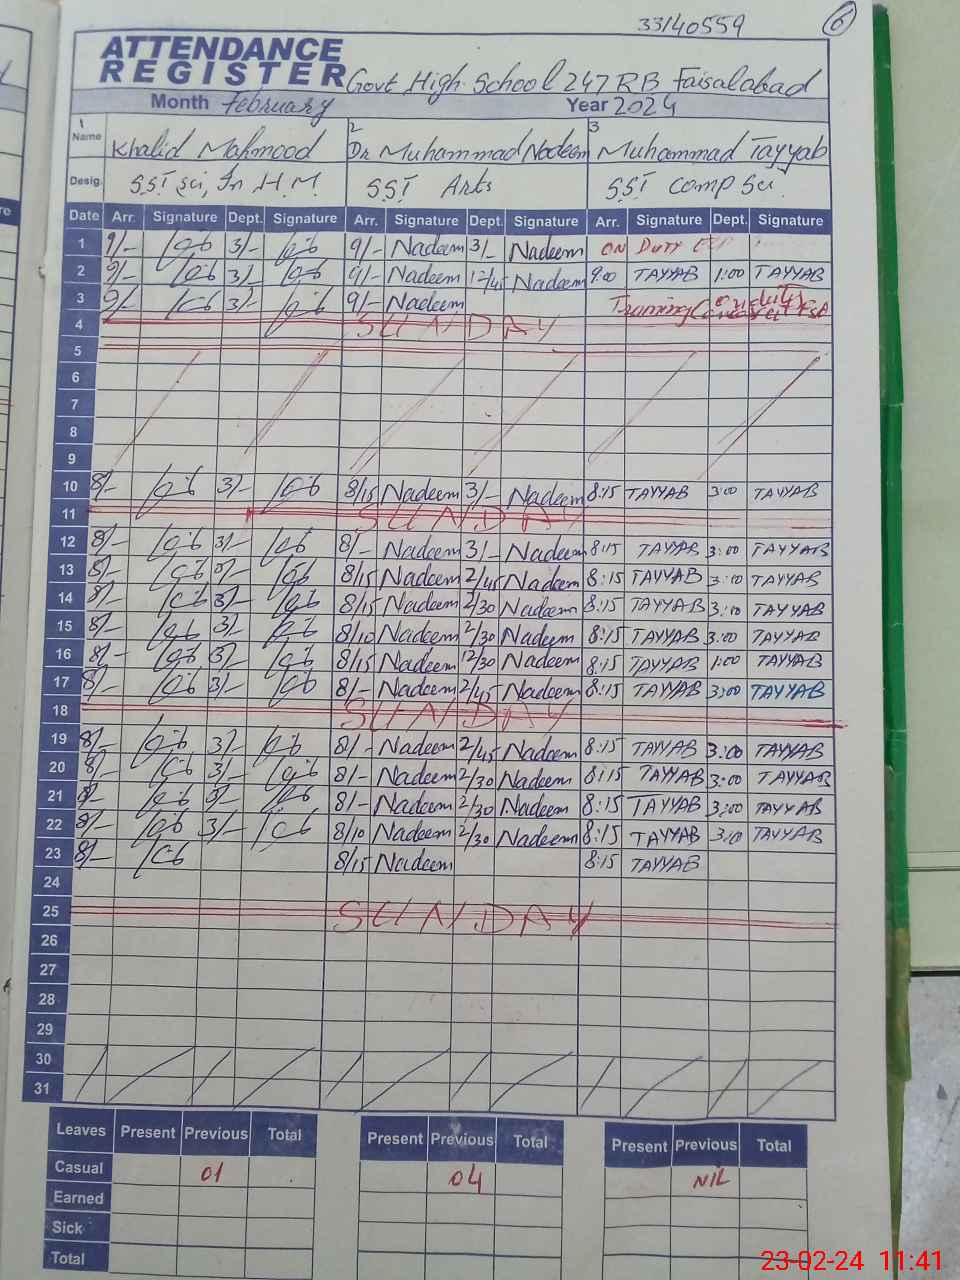 33140559
6
ATTENDANCE
REGISTER Govt High School 247 RB Faisalabad
Month February Year 2024
1 2 3
Name Khalid Mahmood Dr Muhammad Nadeem Muhammad Tayyab
Desig. SST Sci, In H.M. SST Arts SST Comp Sci
Date Arr. Signature Dept. Signature Arr. Signature Dept. Signature Arr. Signature Dept. Signature
1 9/- 3/- 9/- Nadeem 3/- Nadeem ON DUTY
2 9/- 3/- 9/- Nadeem 12/45 Nadeem 9:00 TAYYAB 1:00 TAYYAB
3 9/- 3/- 9/- Nadeem Training
4 SUNDAY
5
6
7
8
9
10 8/- 3/- 8/15 Nadeem 3/- Nadeem 8:15 TAYYAB 3:00 TAYYAB
11 SUNDAY
12 8/- 3/- 8/- Nadeem 3/- Nadeem 8:15 TAYYAB 3:00 TAYYAB
13 8/- 3/- 8/15 Nadeem 2/45 Nadeem 8:15 TAYYAB 3:10 TAYYAB
14 8/- 3/- 8/15 Nadeem 2/30 Nadeem 8:15 TAYYAB 3:10 TAYYAB
15 8/- 3/- 8/10 Nadeem 2/30 Nadeem 8:15 TAYYAB 3:00 TAYYAB
16 8/- 3/- 8/15 Nadeem 12/30 Nadeem 8:15 TAYYAB 1:00 TAYYAB
17 8/- 3/- 8/- Nadeem 2/45 Nadeem 8:15 TAYYAB 3:00 TAYYAB
18 SUNDAY
19 8/- 3/- 8/- Nadeem 2/45 Nadeem 8:15 TAYYAB 3:00 TAYYAB
20 8/- 3/- 8/- Nadeem 2/30 Nadeem 8:15 TAYYAB 3:00 TAYYAB
21 8/- 3/- 8/- Nadeem 2/30 Nadeem 8:15 TAYYAB 3:00 TAYYAB
22 8/- 3/- 8/10 Nadeem 2/30 Nadeem 8:15 TAYYAB 3:10 TAYYAB
23 8/- 8/15 Nadeem 8:15 TAYYAB
24
25 SUNDAY
26
27
28
29
30
31
Leaves Present Previous Total Present Previous Total Present Previous Total
Casual 01 04 NIL
Earned
Sick
Total
23-02-24 11:41